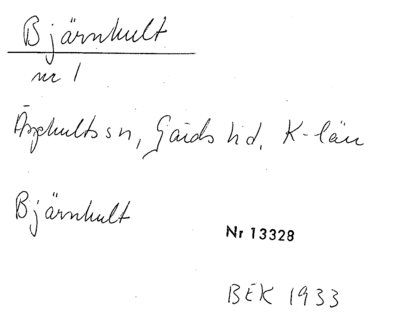 Bjärnhult
nr 1
Äsphults sn, Gärds hd, K-län
Bjärnhult
Nr 13328
BEK 1933